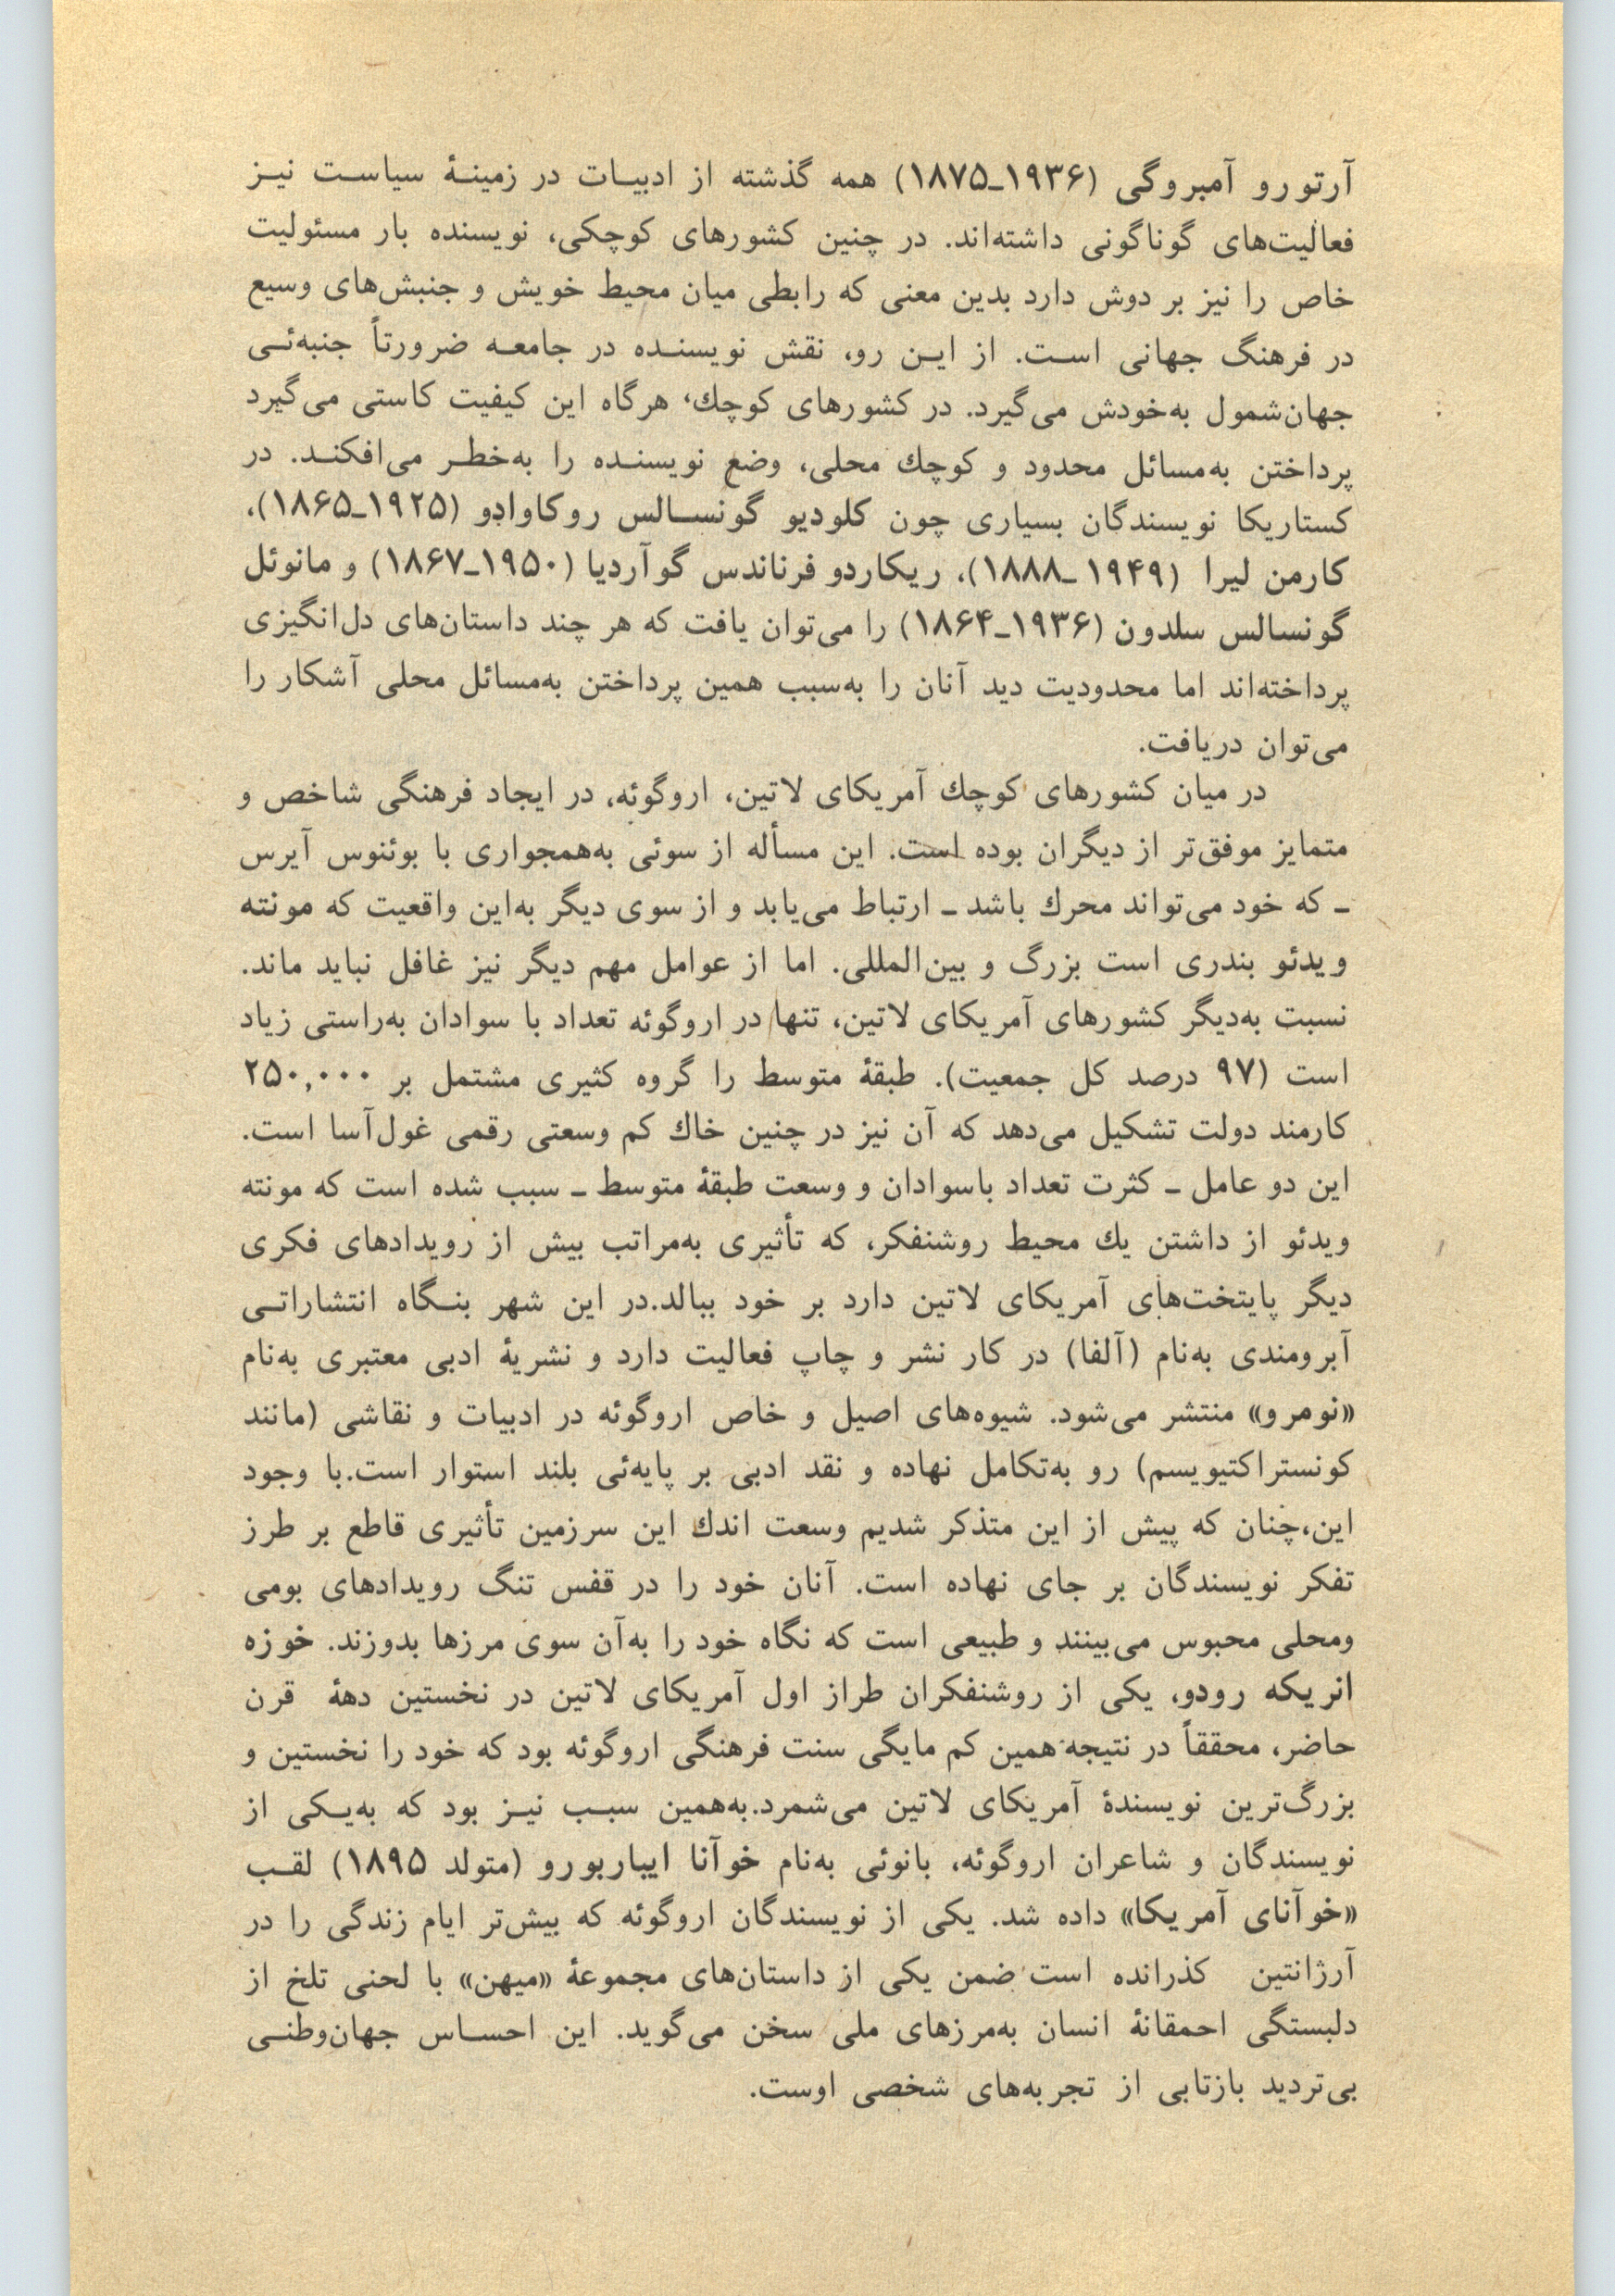 آرتورو آمبروگی (۱۹۳۶ـ۱۸۷۵) همه گذشته از ادبیات در زمینهٔ سیاست نیز
فعالیت‌های گوناگونی داشته‌اند. در چنین کشورهای کوچکی، نویسنده بار مسئولیت
خاص را نیز بر دوش دارد بدین معنی که رابطی میان محیط خویش و جنبش‌های وسیع
در فرهنگ جهانی است. از این رو، نقش نویسنده در جامعه ضرورتاً جنبه‌ئی
جهان‌شمول به‌خودش می‌گیرد. در کشورهای کوچك، هرگاه این کیفیت کاستی می‌گیرد
پرداختن به‌مسائل محدود و کوچك محلی، وضع نویسنده را به‌خطر می‌افکند. در
کستاریکا نویسندگان بسیاری چون کلودیو گونسالس روکاوادو (۱۹۲۵ـ۱۸۶۵)،
کارمن لیرا (۱۹۴۹ـ۱۸۸۸)، ریکاردو فرناندس گوآردیا (۱۹۵۰ـ۱۸۶۷) و مانوئل
گونسالس سلدون (۱۹۳۶ـ۱۸۶۴) را می‌توان یافت که هر چند داستان‌های دل‌انگیزی
پرداخته‌اند اما محدودیت دید آنان را به‌سبب همین پرداختن به‌مسائل محلی آشکار را
می‌توان دریافت.
در میان کشورهای کوچك آمریکای لاتین، اروگوئه، در ایجاد فرهنگی شاخص و
متمایز موفق‌تر از دیگران بوده است. این مسأله از سوئی به‌همجواری با بوئنوس آیرس
ـ که خود می‌تواند محرك باشد ـ ارتباط می‌یابد و از سوی دیگر به‌این واقعیت که مونته
ویدئو بندری است بزرگ و بین‌المللی. اما از عوامل مهم دیگر نیز غافل نباید ماند.
نسبت به‌دیگر کشورهای آمریکای لاتین، تنها در اروگوئه تعداد با سوادان به‌راستی زیاد
است (۹۷ درصد کل جمعیت). طبقهٔ متوسط را گروه کثیری مشتمل بر ۲۵۰,۰۰۰
کارمند دولت تشکیل می‌دهد که آن نیز در چنین خاك کم وسعتی رقمی غول‌آسا است.
این دو عامل ـ کثرت تعداد باسوادان و وسعت طبقهٔ متوسط ـ سبب شده است که مونته
ویدئو از داشتن یك محیط روشنفکر، که تأثیری به‌مراتب بیش از رویدادهای فکری
دیگر پایتخت‌های آمریکای لاتین دارد بر خود ببالد.در این شهر بنگاه انتشاراتی
آبرومندی به‌نام (آلفا) در کار نشر و چاپ فعالیت دارد و نشریهٔ ادبی معتبری به‌نام
«نومرو» منتشر می‌شود. شیوه‌های اصیل و خاص اروگوئه در ادبیات و نقاشی (مانند
کونستراکتیویسم) رو به‌تکامل نهاده و نقد ادبی بر پایه‌ئی بلند استوار است.با وجود
این،چنان که پیش از این متذکر شدیم وسعت اندك این سرزمین تأثیری قاطع بر طرز
تفکر نویسندگان بر جای نهاده است. آنان خود را در قفس تنگ رویدادهای بومی
ومحلی محبوس می‌بینند و طبیعی است که نگاه خود را به‌آن سوی مرزها بدوزند. خوزه
انریکه رودو، یکی از روشنفکران طراز اول آمریکای لاتین در نخستین دههٔ قرن
حاضر، محققاً در نتیجه همین کم مایگی سنت فرهنگی اروگوئه بود که خود را نخستین و
بزرگ‌ترین نویسندهٔ آمریکای لاتین می‌شمرد.به‌همین سبب نیز بود که به‌یکی از
نویسندگان و شاعران اروگوئه، بانوئی به‌نام خوآنا ایباربورو (متولد ۱۸۹۵) لقب
«خوآنای آمریکا» داده شد. یکی از نویسندگان اروگوئه که بیش‌تر ایام زندگی را در
آرژانتین کذرانده است ضمن یکی از داستان‌های مجموعهٔ «میهن» با لحنی تلخ از
دلبستگی احمقانهٔ انسان به‌مرزهای ملی سخن می‌گوید. این احساس جهان‌وطنی
بی‌تردید بازتابی از تجربه‌های شخصی اوست.